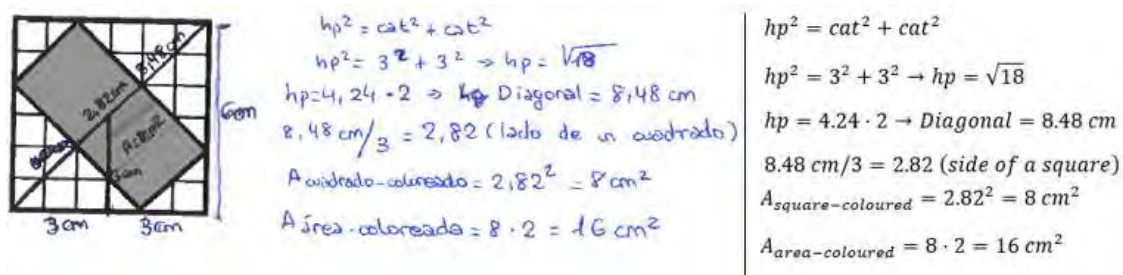 8,48cm
2,82cm
A=8cm²
3cm
6cm
3cm 3cm
hp² = cat² + cat²
hp² = 3² + 3² → hp = √18
hp=4,24·2 → Diagonal = 8,48 cm
8,48 cm/3 = 2,82 (lado de un cuadrado)
A cuadrado-coloreado = 2,82² = 8 cm²
A área-coloreada = 8·2 = 16 cm²
hp² = cat² + cat²
hp² = 3² + 3² → hp = √18
hp = 4.24 · 2 → Diagonal = 8.48 cm
8.48 cm/3 = 2.82 (side of a square)
A_square−coloured = 2.82² = 8 cm²
A_area−coloured = 8 · 2 = 16 cm²